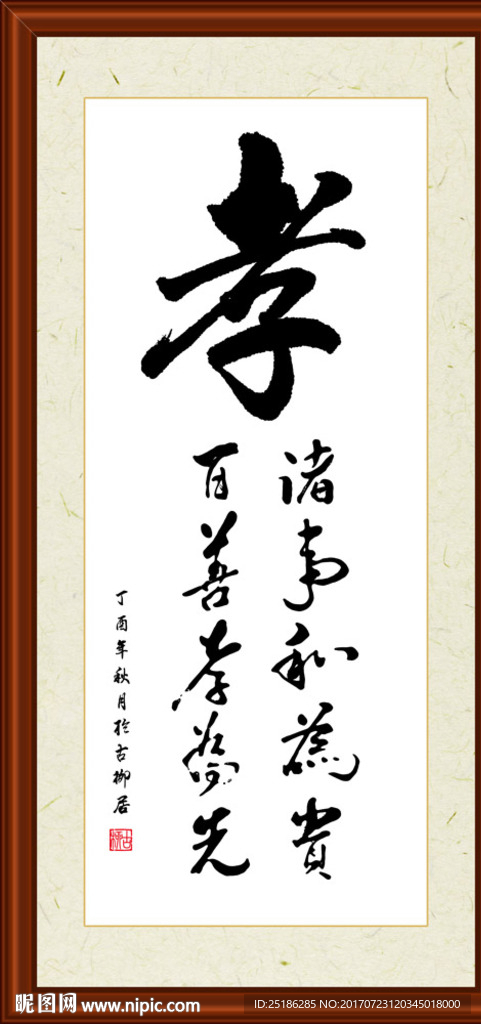 孝
诸事和為貴
百善孝為先
丁酉年秋月於古柳居
昵图网 www.nipic.com
ID:25186285 NO:20170723120345018000